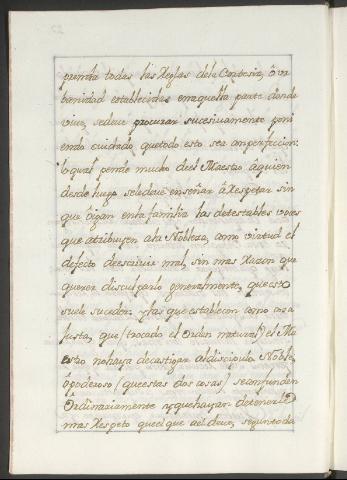 prenda todas las Reglas dela Cortesia, ô vr
banidad establecidas enaquella parte donde
vive, sedeve procurar sucesivamente poni
endo cuidado, quetodo esto sea conperfeccion:
loqual pende mucho deel Maestro âquien
desde luego seledeve enseñar âRespetar sin
que oigan enla familia las detestables voces
que atribuyen ala Nobleza, como virtud el
defecto deescrivir mal, sin mas Razon que
querer disculparlo generalmente, queesto
suele suceder: ylas que establecen como cosa
Justa, que (trocado el Orden natural) el Ma
estro nohaya decastigar aldiscipulo Noble,
ôpoderoso (queestas dos cosas) seconfunden
Ôrdinariamente yquehayan detenerle
mas Respeto queelque aeldeve, seguntoda